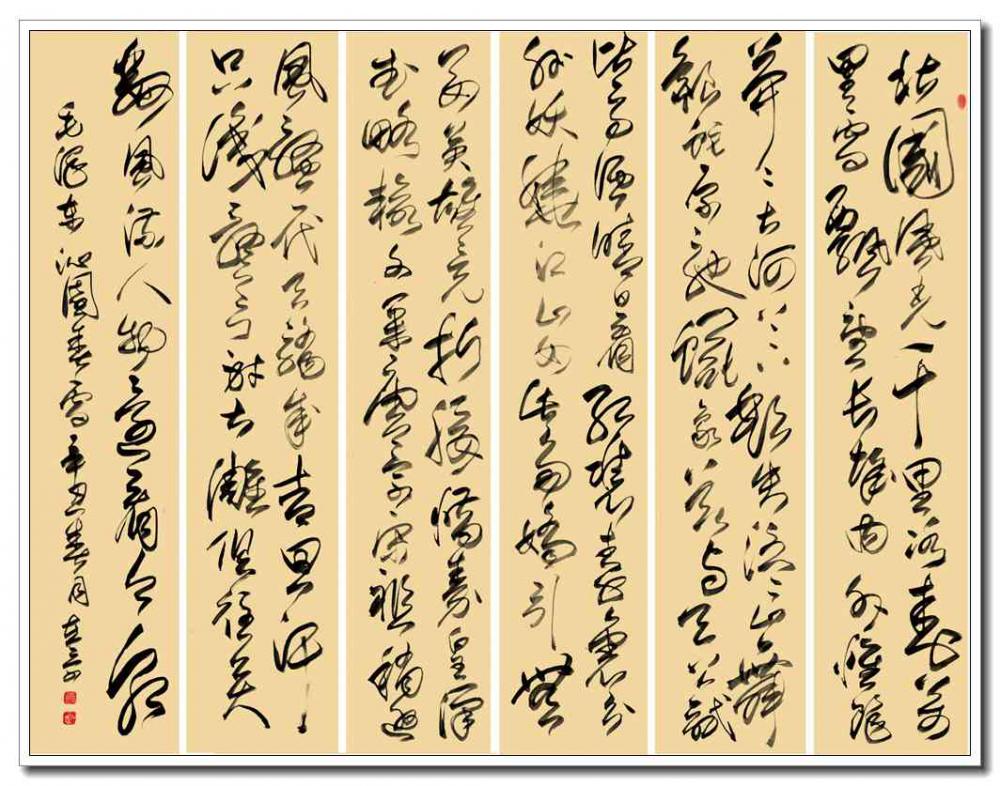 北國風光千里冰封萬
里雪飄望長城內外惟餘
莽々大河上下頓失滔々山舞
銀蛇原馳蠟象欲與天公試
比高須晴日看紅裝素裹分
外妖嬈江山如此多嬌引無
數英雄競折腰惜秦皇漢
武略輸文采唐宗宋祖稍遜
風騷一代天驕成吉思汗
只識彎弓射大雕俱往矣
數風流人物還看今朝
毛澤東沁園春雪辛丑春月